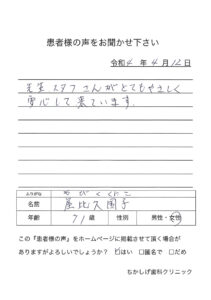 患者様の声をお聞かせ下さい
令和4年4月12日
先生スタフさんがとてもやさしく
安心して来ています。
ふりがな
名前 屋比久国子
年齢 71歳 性別 男性・女性
この『患者様の声』をホームページに掲載させて頂く場合が
ありますがよろしいでしょうか? ☑はい □匿名で □だめ
ちかしげ歯科クリニック